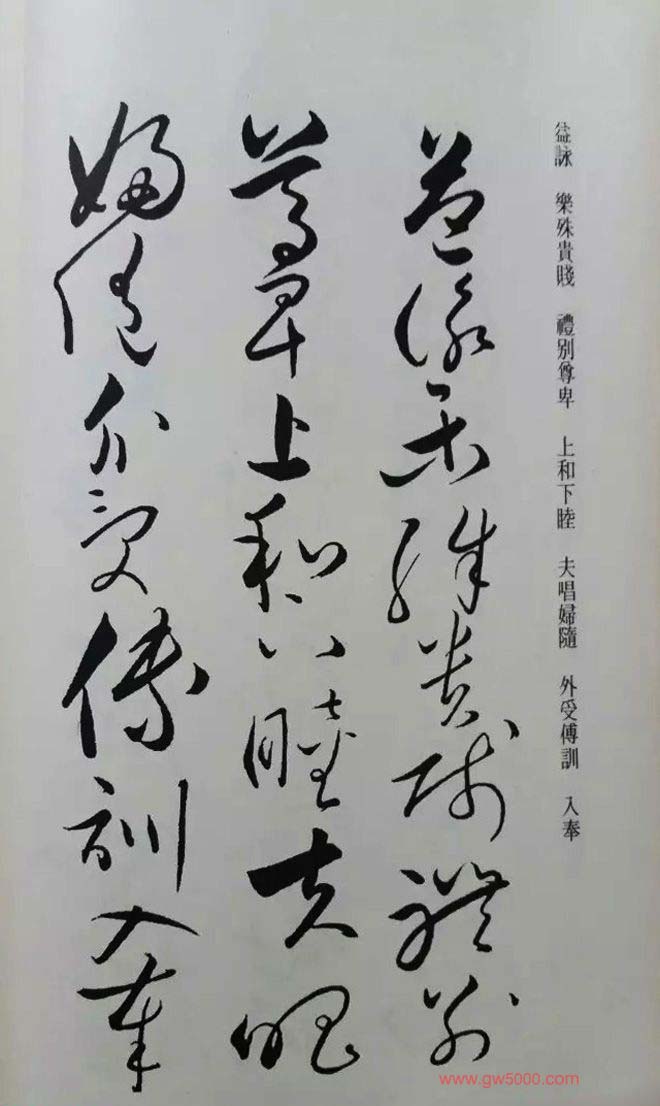 益詠 樂殊貴賤 禮別尊卑 上和下睦 夫唱婦隨 外受傅訓 入奉
益詠樂殊貴賤禮別
尊卑上和下睦夫唱
婦隨外受傅訓入奉
www.gw5000.com